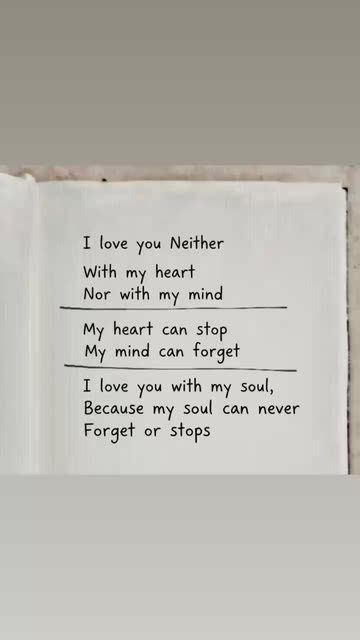 I love you Neither
With my heart
Nor with my mind
My heart can stop
My mind can forget
I love you with my soul,
Because my soul can never
Forget or stops